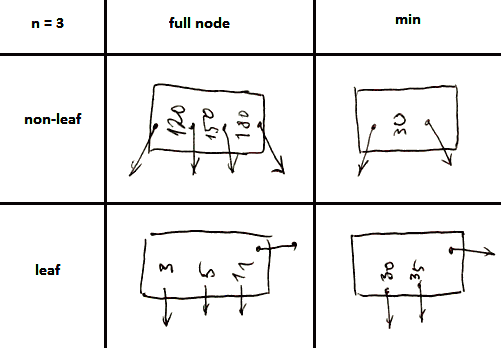 n = 3
full node
min
non-leaf
120 150 180
30
leaf
3 5 11
30 35